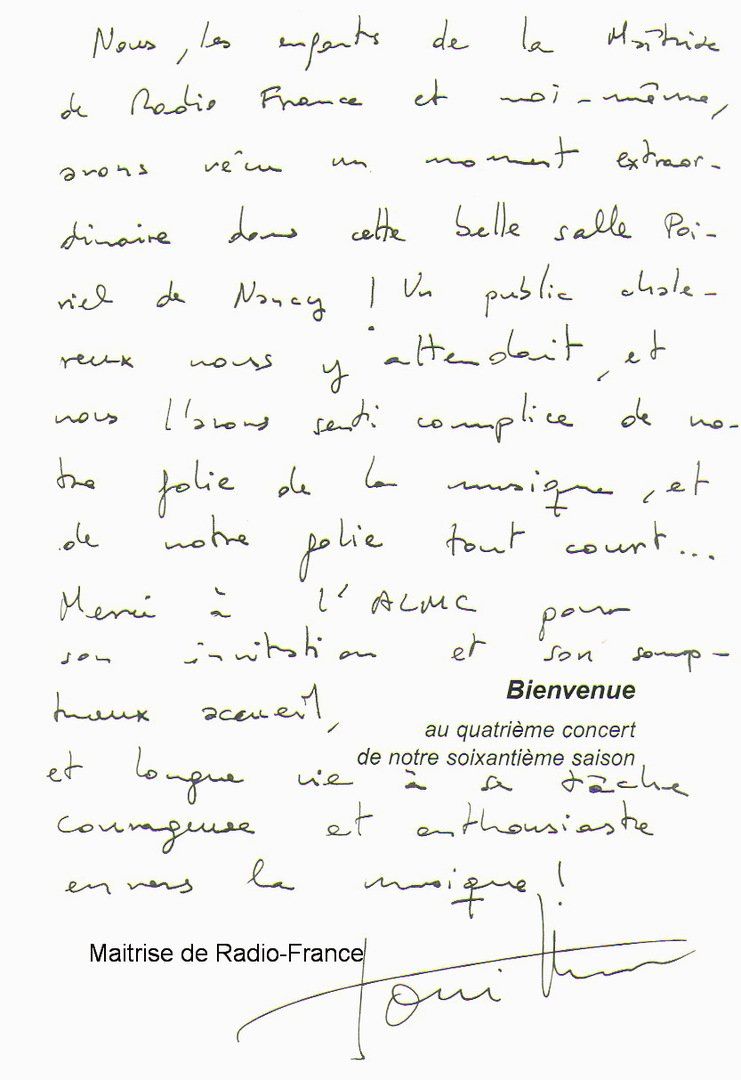 Nous, les enfants de la Maîtrise
de Radio France et moi-même,
avons vécu un moment extraor-
dinaire dans cette belle salle Poi-
riel de Nancy ! Un public chale-
reux nous y attendait, et
nous l'avons senti complice de no-
tre folie de la musique, et
de notre folie tout court...
Merci à l'ALMC pour
son invitation et son somp-
tueux accueil,
Bienvenue
au quatrième concert
de notre soixantième saison
et longue vie à sa tâche
courageuse et enthousiaste
envers la musique !
Maitrise de Radio-France
Toni